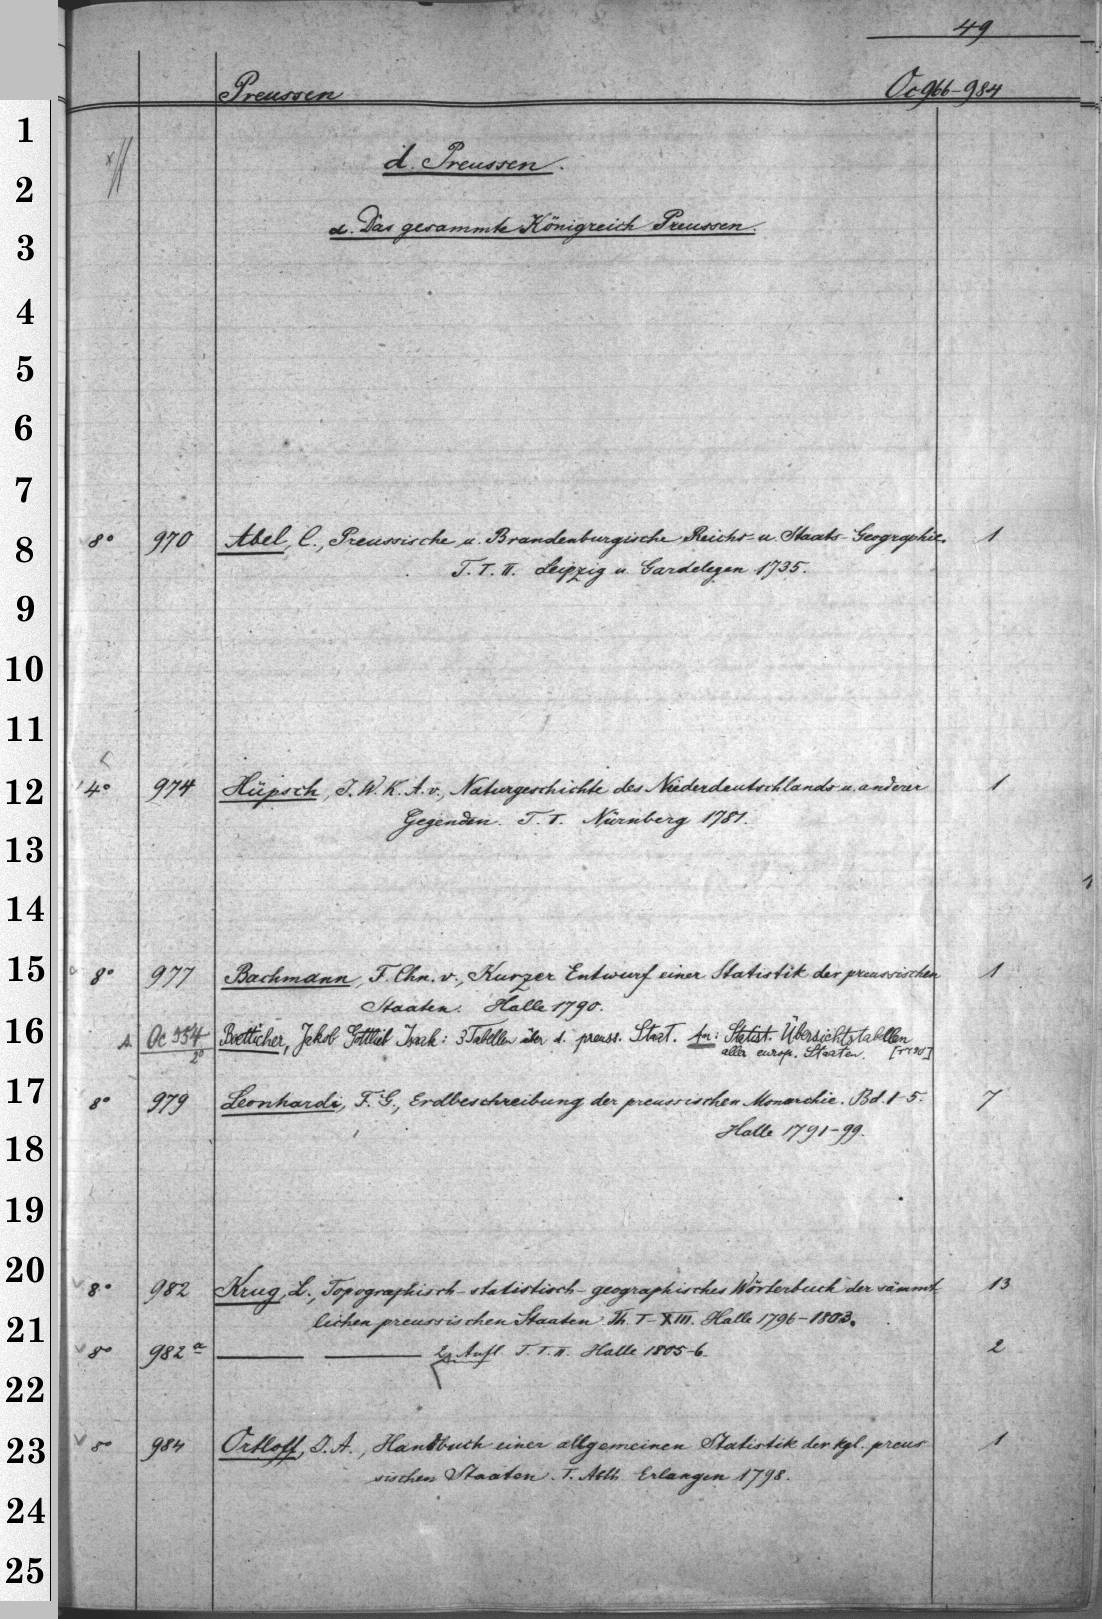 49
Preussen Oc 966-984
d. Preussen.
α. Das gesammte Königreich Preussen.
8° 970 Abel, C., Preussische u. Brandenburgische Reichs- u. Staats-Geographie. 1
T. I. II. Leipzig u. Gardelegen 1735.
4° 974 Hüpsch, J. W. K. A. v., Naturgeschichte des Niederdeutschlands u. anderer 1
Gegenden. T. I. Nürnberg 1781.
8° 977 Bachmann, F. Chn. v., Kurzer Entwurf einer Statistik der preussischen 1
Staaten. Halle 1790.
Oc 554 Boetticher, Jakob Gottlieb Isaak: 3 Tabellen über d. preuss. Staat. An: Statist. Übersichtstabellen
2° aller europ. Staaten.
8° 979 Leonhardi, F. G., Erdbeschreibung der preussischen Monarchie. Bd. 1-5. 7
Halle 1791-99.
8° 982 Krug, L., Topographisch-statistisch-geographisches Wörterbuch der sämmt- 13
lichen preussischen Staaten. Th. I-XIII. Halle 1796-1803.
8° 982a 2. Aufl. T. I. II. Halle 1805-6. 2
8° 984 Ortloff, J. A., Handbuch einer allgemeinen Statistik der kgl. preus- 1
sischen Staaten. I. Abth. Erlangen 1798.
1
2
3
4
5
6
7
8
9
10
11
12
13
14
15
16
17
18
19
20
21
22
23
24
25